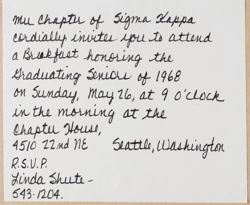 mu Chapter of Sigma Kappa
cordially invites you to attend
a Breakfast honoring the
Graduating Seniors of 1968
on Sunday, May 26, at 9 O'clock
in the morning at the
Chapter House,
4510 22nd NE Seattle, Washington
R.S.V.P.
Linda Shute -
543-1204.